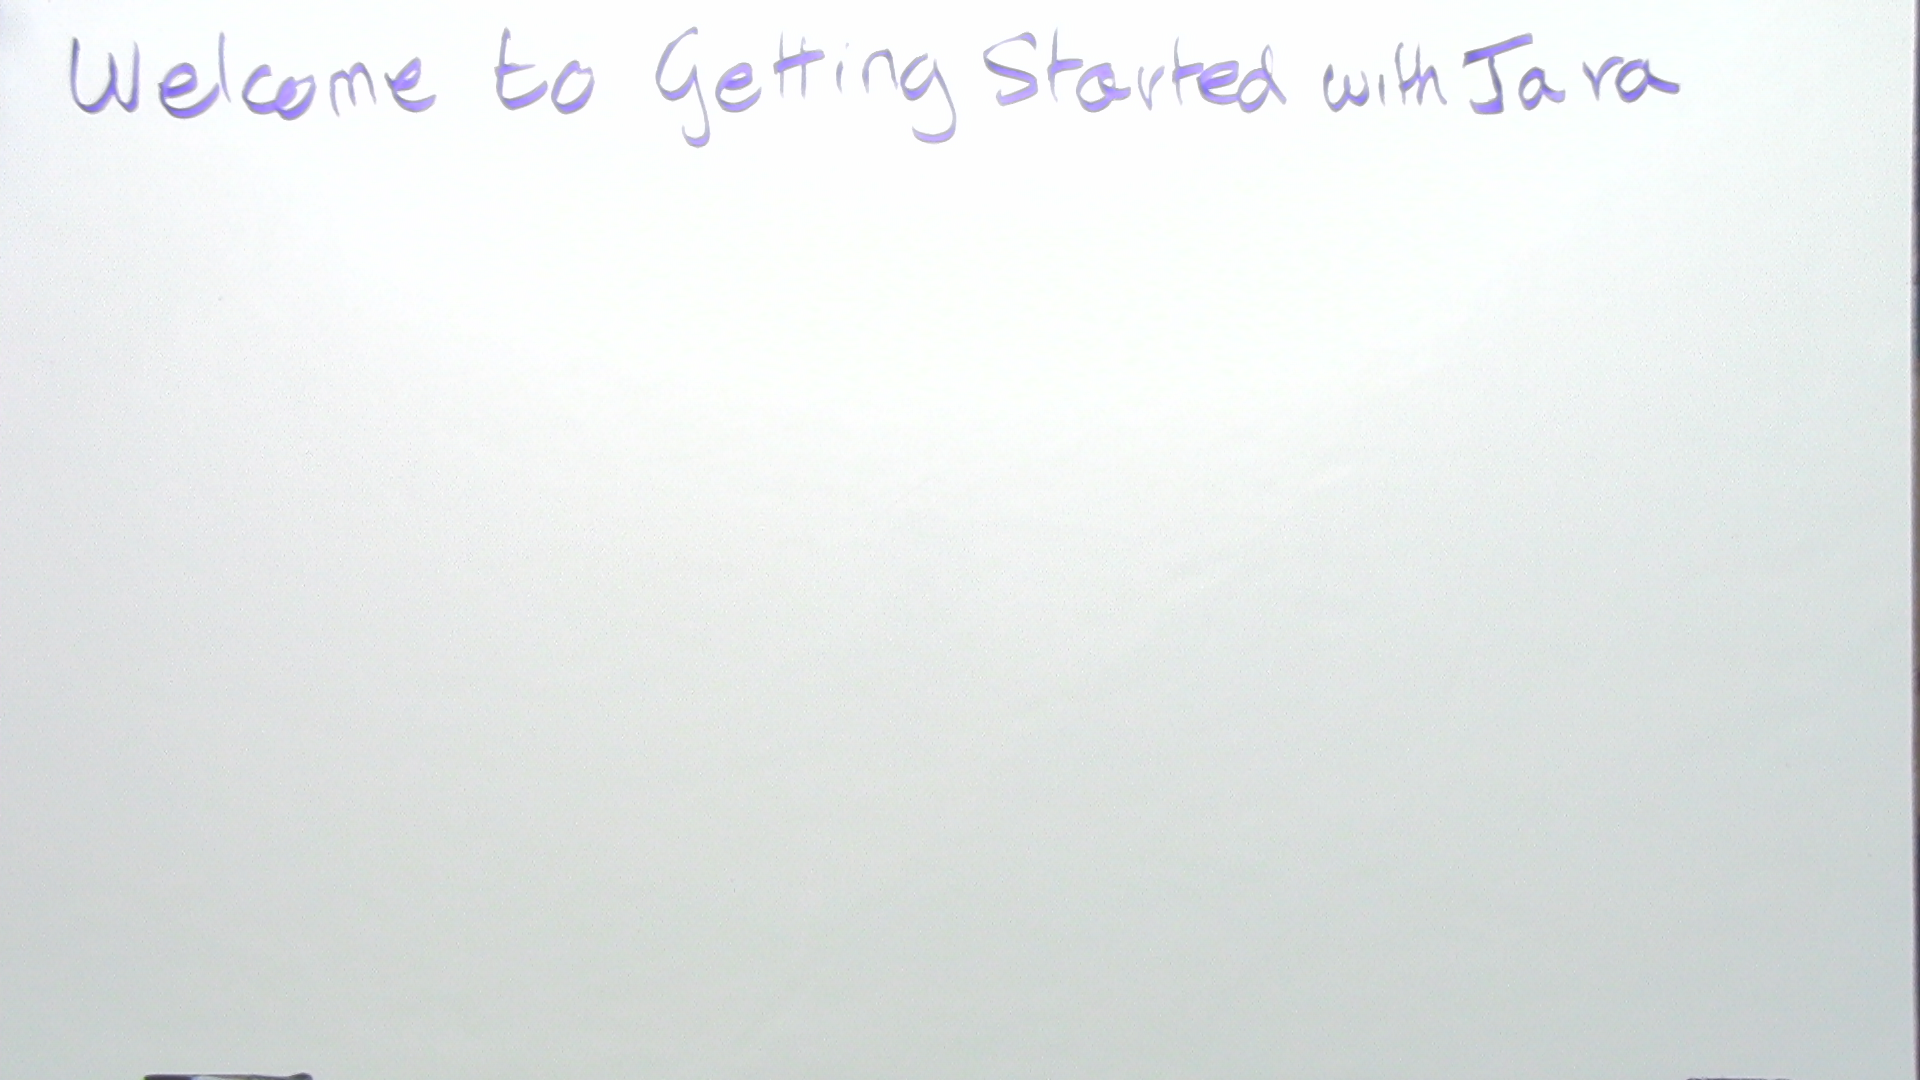 Welcome to Getting Started with Java